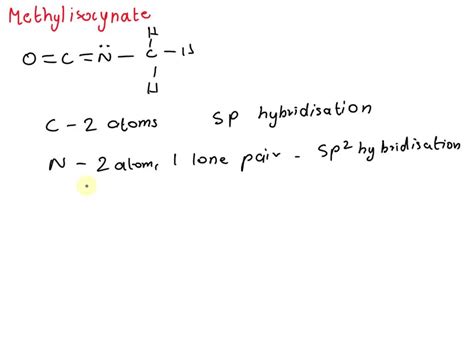 Methylisocynate
H
O=C=N̈-C-H
H
C - 2 atoms SP hybridisation
N - 2 atom, 1 lone pair - SP² hybridisation